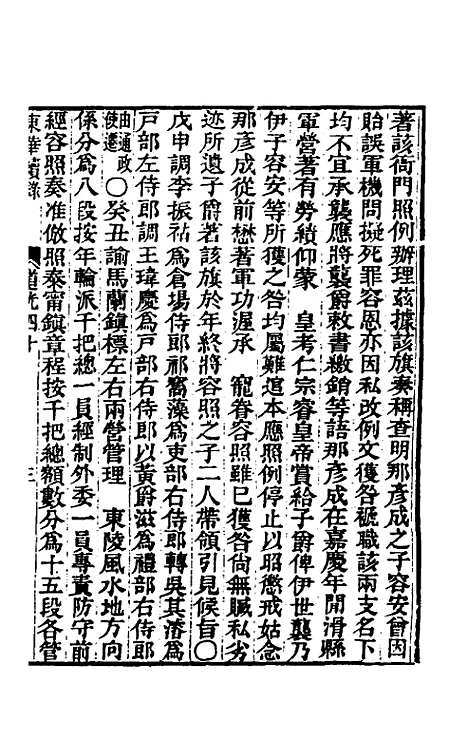 著該衙門照例辦理茲據該旗奏稱查明那彥成之子容安曾因
貽誤軍機問擬死罪容恩亦因私改例文獲咎褫職該兩支名下
均不宜承襲應將襲爵敕書繳銷等語那彥成在嘉慶年間滑縣
軍營著有勞績仰蒙　皇考仁宗睿皇帝賞給子爵俾伊世襲乃
伊子容安等所獲之咎均屬難逭本應照例停止以昭懲戒姑念
那彥成從前懋著軍功渥承　寵眷容照雖已獲咎尙無贓私劣
迹所遺子爵著該旗於年終將容照之子二人帶領引見候旨〇
戊申調李振祜爲倉場侍郎祁寯藻爲吏部右侍郎轉吳其濬爲
戸部左侍郎調王瑋慶爲戸部右侍郎以黃爵滋爲禮部右侍郎
由通政使遷〇癸丑諭馬蘭鎭標左右兩營管理　東陵風水地方向
係分爲八段按年輪派千把總一員經制外委一員專責防守前
經容照奏准倣照泰甯鎭章程按千把總額數分爲十五段各管
東華續錄　道光四十　三